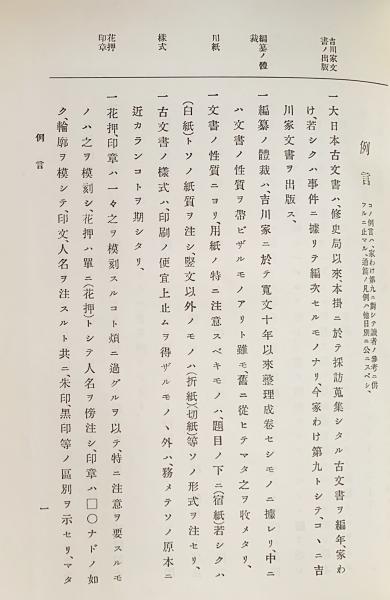 例言
コノ例言ハ、家わけ第九ニ對シテ讀者ノ參考ニ供
フルニ止マル、通篇ノ凡例ハ他日別ニ公ニスベシ、
吉川家文
書ノ出版
一大日本古文書ハ、修史局以來、本掛ニ於テ採訪蒐集シタル古文書ヲ編年、家わ
け、若シクハ事件ニ據リテ編次セルモノナリ、今家わけ第九トシテ、コヽニ吉
川家文書ヲ出版ス、
編纂ノ體
裁
一編纂ノ體裁ハ、吉川家ニ於テ寛文十年以來整理成卷セシモノニ據レリ、中ニ
ハ文書ノ性質ヲ帶ビザルモノアリト雖モ、舊ニ從ヒテマタ之ヲ收メタリ、
用紙
一文書ノ性質ニヨリ、用紙ノ特ニ注意スベキモノハ、題目ノ下ニ(宿紙)若シクハ
(白紙)トソノ紙質ヲ注シ、竪文以外ノモノハ(折紙)(切紙)等ソノ形式ヲ注セリ、
樣式
一古文書ノ樣式ハ、印刷ノ便宜上止ムヲ得ザルモノヽ外ハ、務メテソノ原本ニ
近カランコトヲ期シタリ、
花押
印章
一花押、印章ハ一々之ヲ模刻スルコト煩ニ過グルヲ以テ、特ニ注意ヲ要スルモ
ノハ之ヲ模刻シ、花押ハ單ニ(花押)トシテ人名ヲ傍注シ、印章ハ□○ナドノ如
ク、輪廓ヲ模シテ、印文、人名ヲ注スルト共ニ、朱印黑印等ノ區別ヲ示セリ、マタ
例言
一